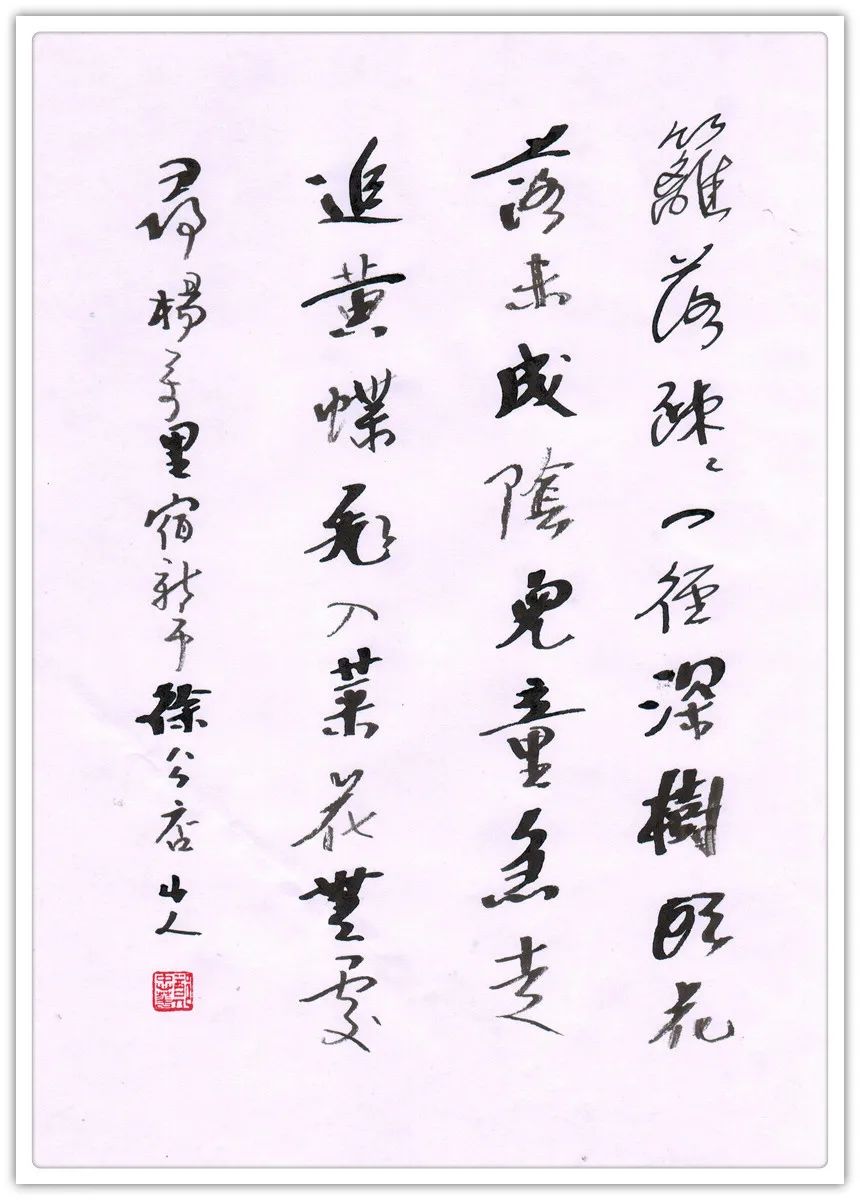 籬落疎〻一徑深樹頭花
落未成陰兒童急走
追黃蝶飛入菜花無處
尋楊萬里宿新市徐公店山人